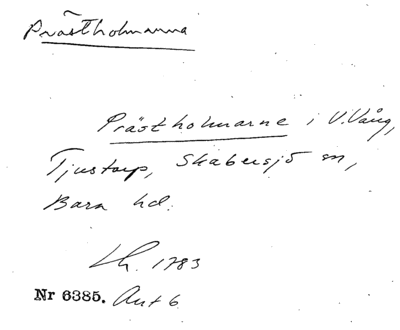 Prästholmarna
Prästholmarne i V. Vång,
Tjustorp, Skabersjö sn,
Bara hd.
Lh. 1783
Nr 6385. Ant 6